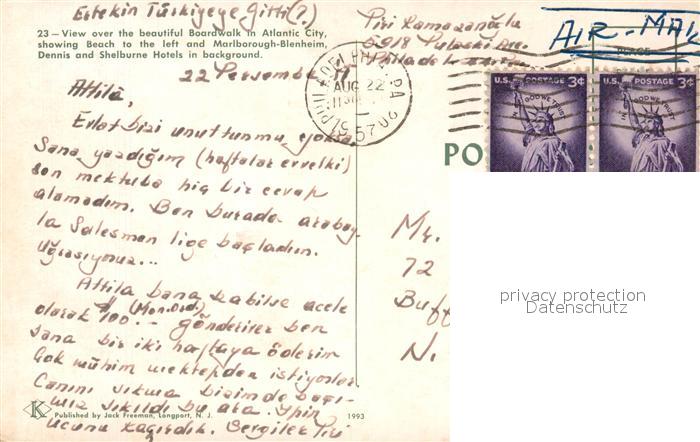 Ertekin Türkiyeye Gitti(?)
23 — View over the beautiful Boardwalk in Atlantic City,
showing Beach to the left and Marlborough-Blenheim,
Dennis and Shelburne Hotels in background.
Piri Ramazanoğlu
5918 Pulaski Ave.
Philadel
AIR-MAIL
22 Persembe
PHILADELPHIA, PA
AUG 22
U.S. POSTAGE 3¢
IN GOD WE TRUST
U.S. POSTAGE 3¢
IN GOD WE TRUST
PO
Attilâ,
Evlat bizi unuttunmu yoksa
Sana yazdığım (haftalar evvelki)
son mektuba hiç bir cevap
alamadım. Ben burada arabay
la Salesman lige başladım.
Uğraşıyoruz...
Attila bana kabilse acele
olarak $100.- (Mon. Ord.) gönderiler ben
sana bir iki haftaya öderim
Çok mühim mektepden istiyorlar.
Canını sıkma bizimde başı-
mız sıkıldı bu ara. Ipin
ucunu kaçırdık. Sevgiler Piri
Mr.
72
Buff
N.
privacy protection
Datenschutz
K
Published by Jack Freeman, Longport, N. J.
1993